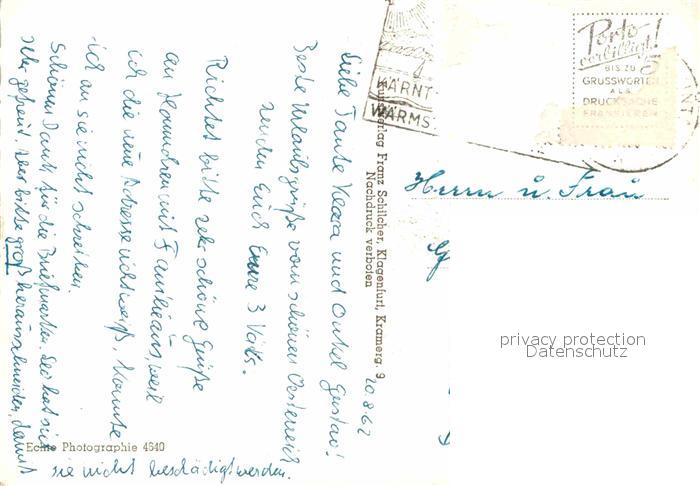 20.8.62
Liebe Tante Klara und Onkel Gustav!
Beste Urlaubsgrüße vom schönen Österreich
senden Euch Eure 3 Volks.
Richtet bitte sehr schöne Grüße
an Hannchen mit Familie aus, weil
ich die neue Adresse nicht weiß, konnte
ich an sie nicht schreiben.
Schönen Dank für die Briefmarken. Leo hat sich
sehr gefreut. Aber bitte groß herausschneiden, damit
sie nicht beschädigt werden.
Echte Photographie 4640
Verlag Franz Schilcher, Klagenfurt, Kramerg. 9
Nachdruck verboten
KÄRNT
WARMS
Porto
verbilligt!
BIS ZU 5
GRUSSWORTEN
ALS
DRUCKSACHE
FRANKIEREN
Herrn u. Frau
privacy protection
Datenschutz